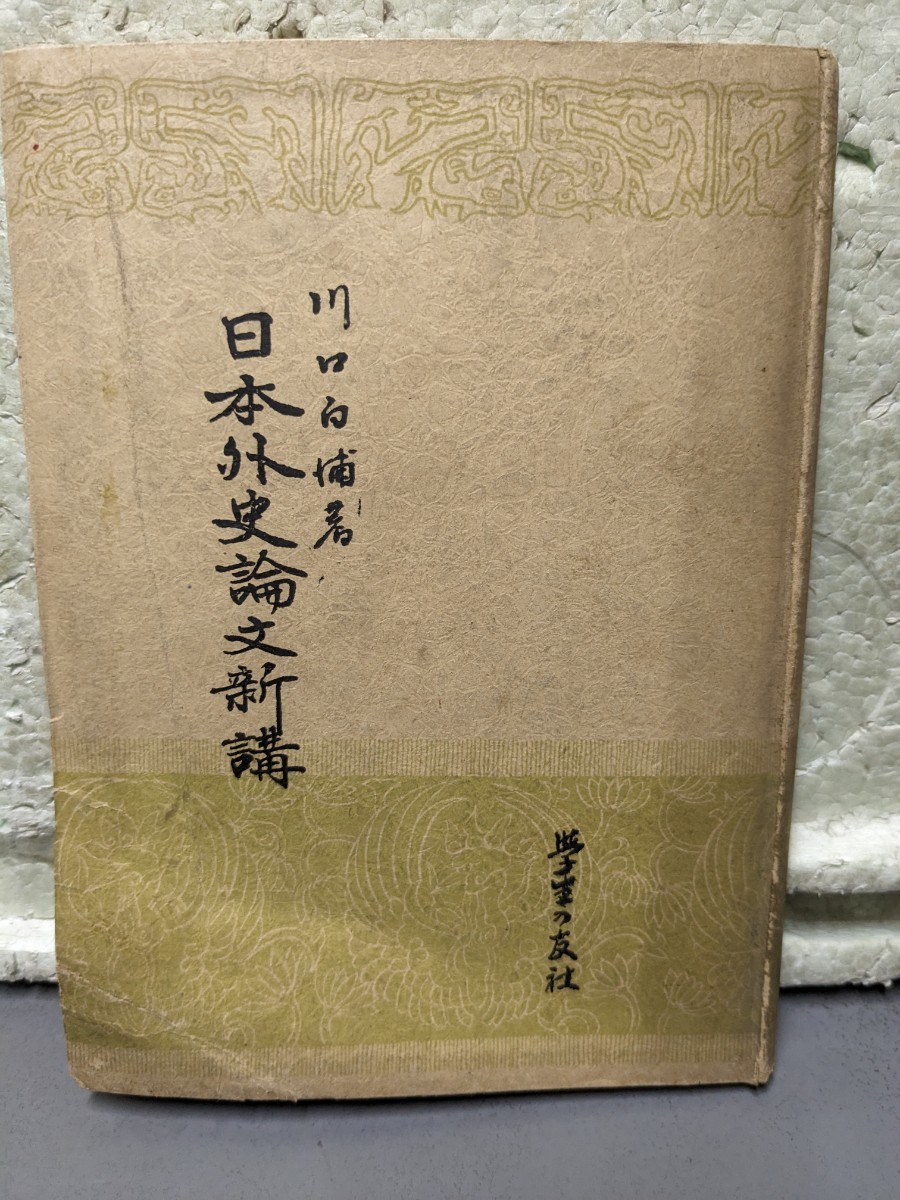 川口白浦著
日本外史論文新講
學生の友社